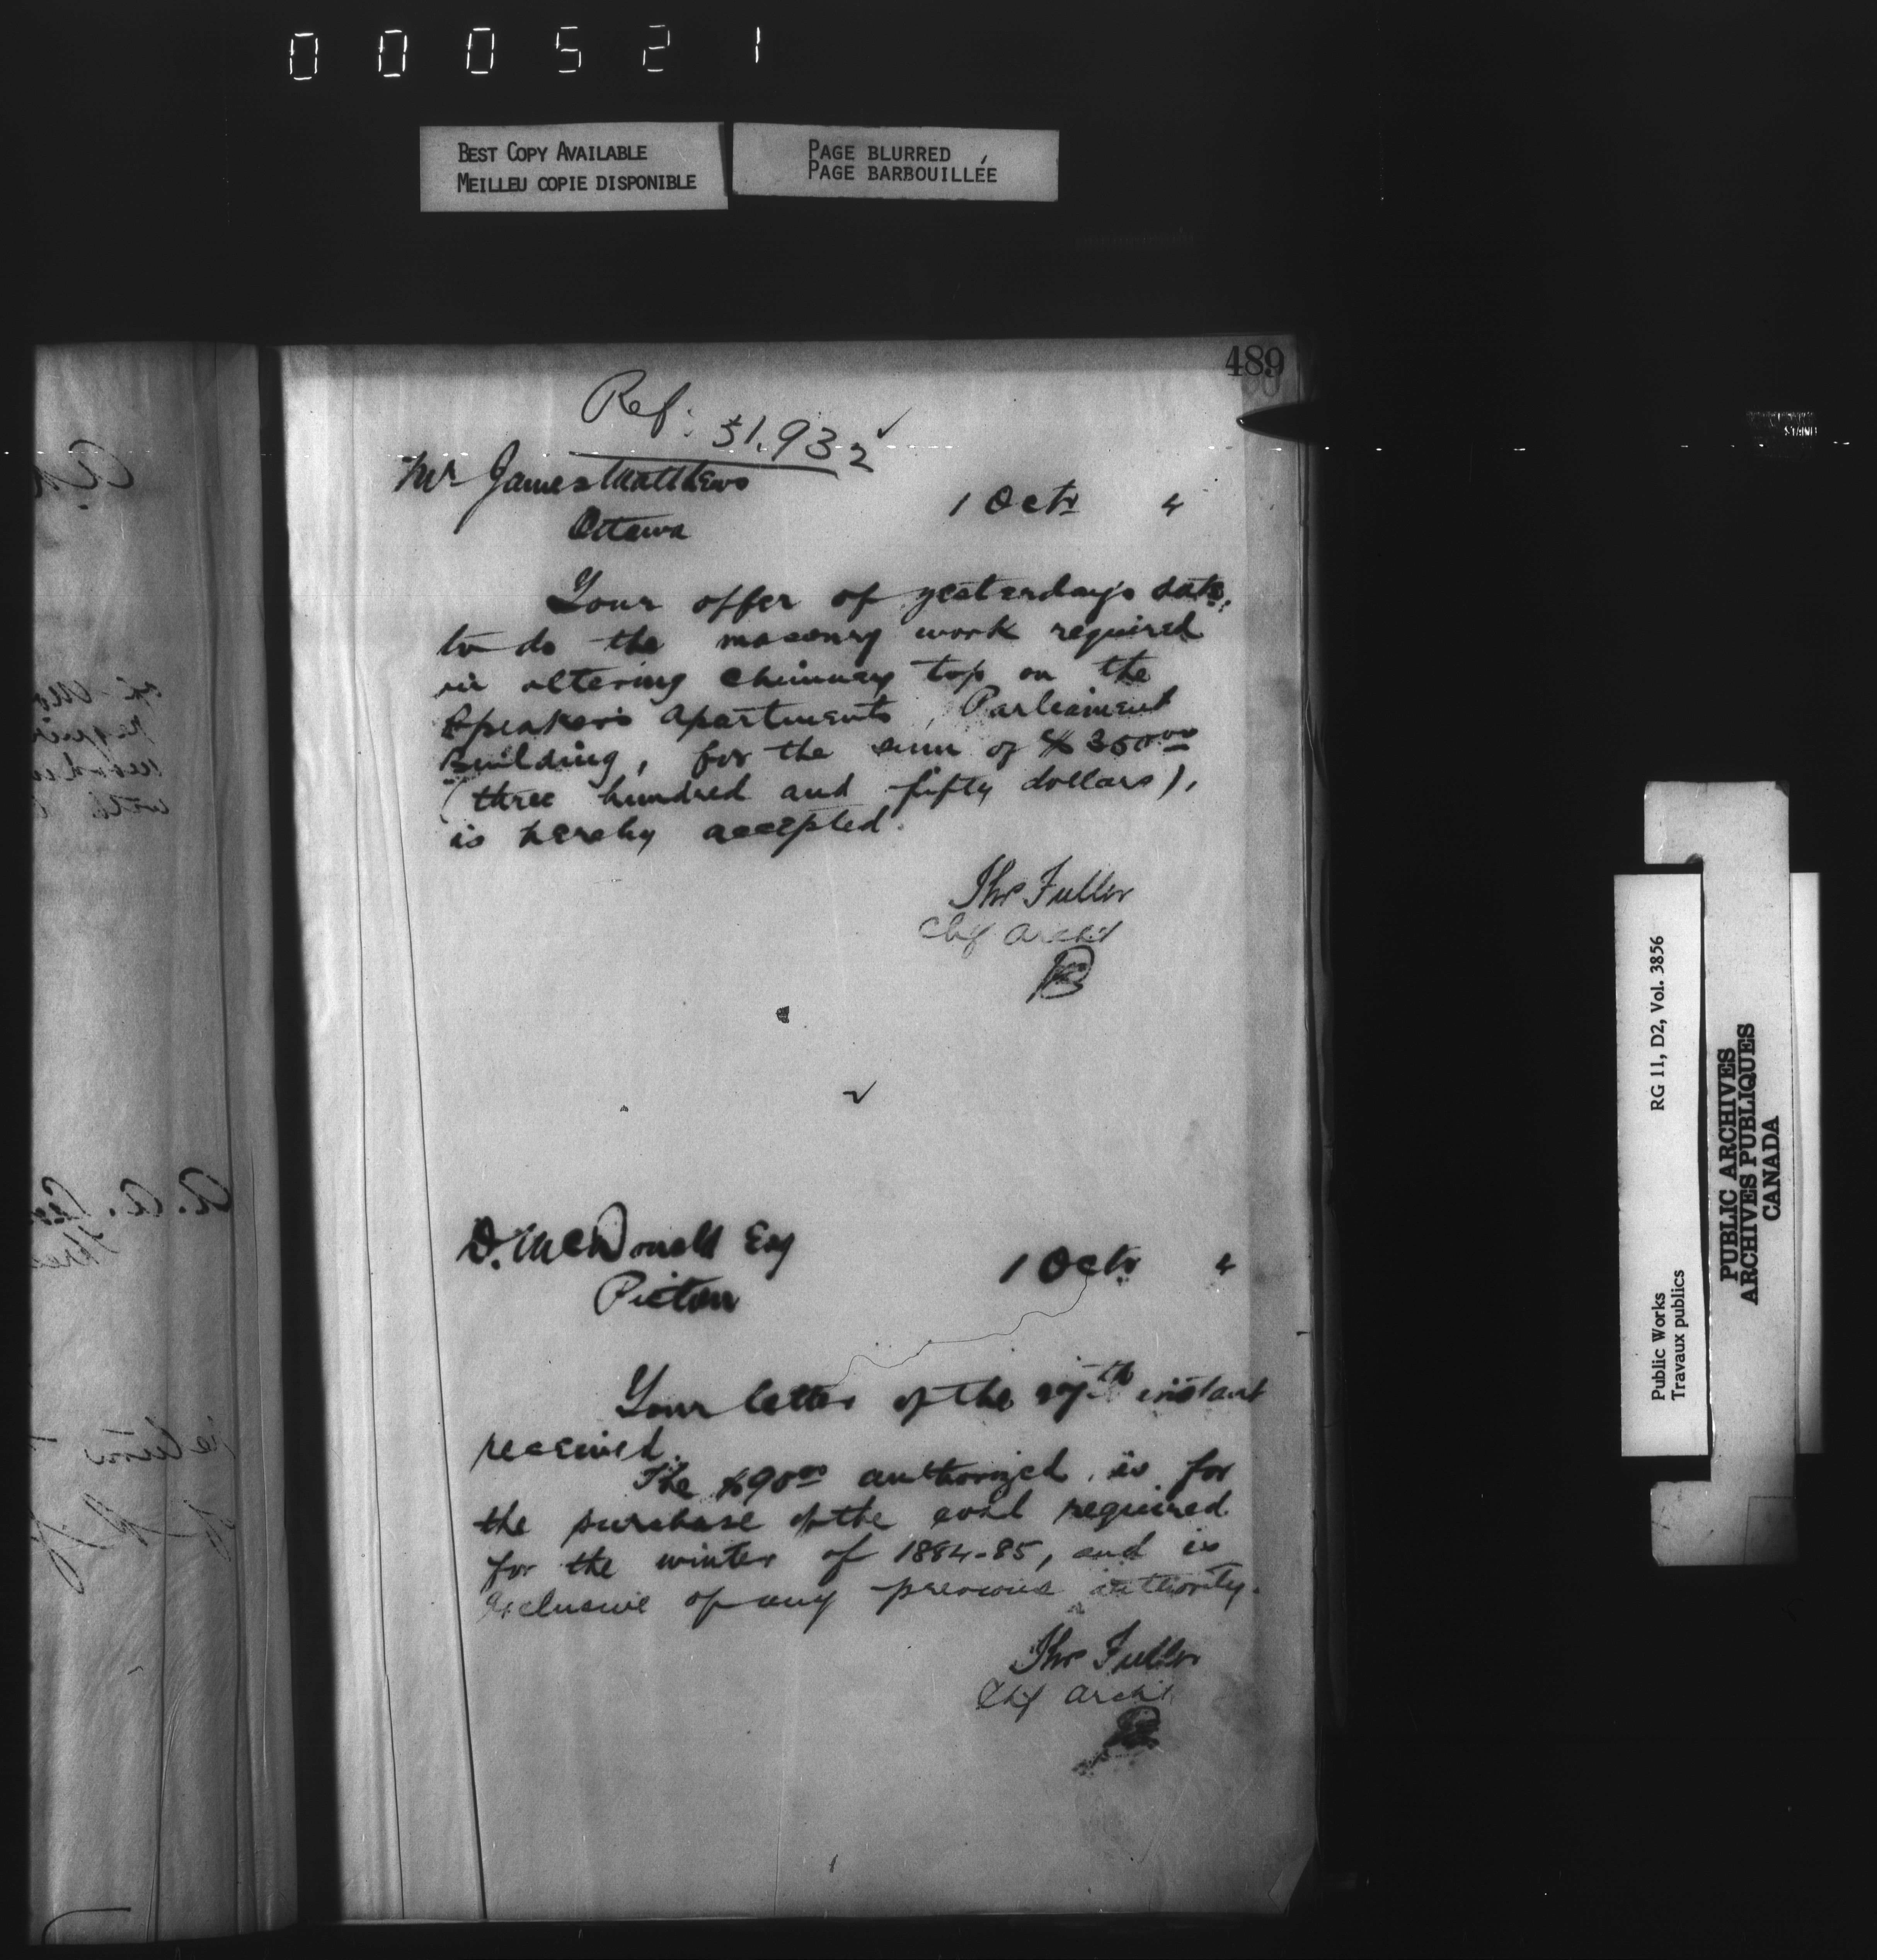 000521
BEST COPY AVAILABLE
MEILLEU COPIE DISPONIBLE
PAGE BLURRED
PAGE BARBOUILLÉE
489
Ref: 51.932
Mr James Matthews
Ottawa
1 Octr 4
Your offer of yesterday's date,
to do the masonry work required
in altering chimney top on the
Speaker's apartments, Parliament
Building, for the sum of $350.00
(three hundred and fifty dollars),
is hereby accepted.
Thos Fuller
Chf Archt
D. McDonald Esq
Pictou
1 Octr 4
Your letter of the instant
received.
The $90.00 authorized, is for
the purchase of the coal required
for the winter of 1884-85, and is
exclusive of any previous authority.
Thos Fuller
Chf Archt
Public Works
Travaux publics
RG 11, D2, Vol. 3856
PUBLIC ARCHIVES
ARCHIVES PUBLIQUES
CANADA